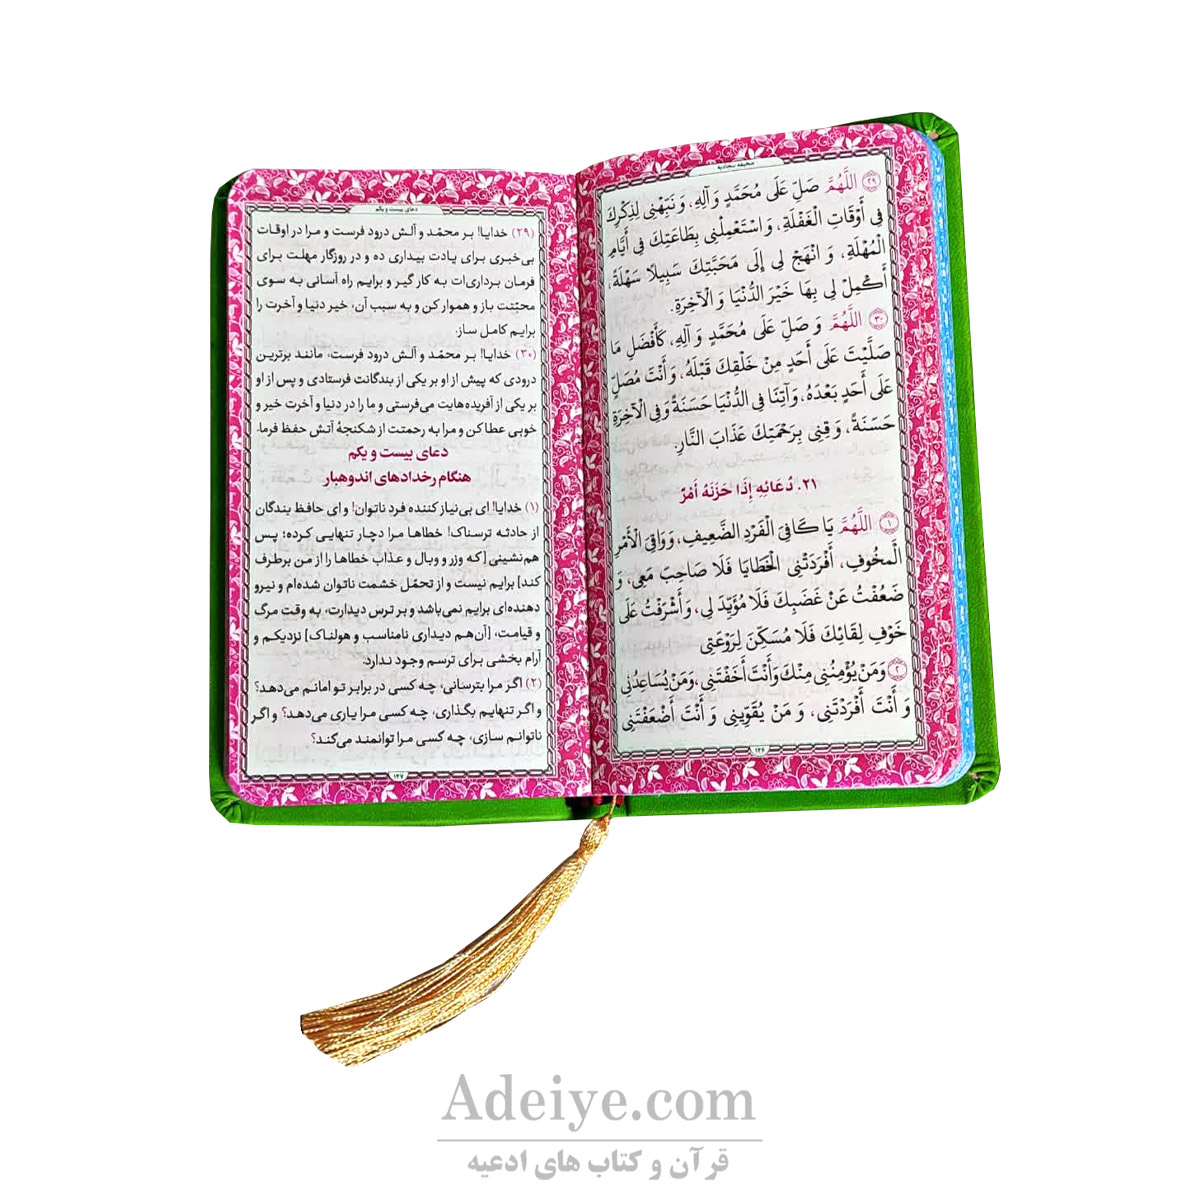 صحیفه سجادیه
(۲۹) اللَّهُمَّ صَلِّ عَلَى مُحَمَّدٍ وَ آلِهِ، وَ نَبِّهْنِی لِذِکْرِكَ
فِی أَوْقَاتِ الْغَفْلَةِ، وَ اسْتَعْمِلْنِی بِطَاعَتِكَ فِی أَيَّامِ
الْمُهْلَةِ، وَ انْهَجْ لِی إِلَى مَحَبَّتِكَ سَبِيلًا سَهْلَةً،
أَكْمِلْ لِی بِهَا خَيْرَ الدُّنْيَا وَ الْآخِرَةِ.
(۳۰) اللَّهُمَّ وَ صَلِّ عَلَى مُحَمَّدٍ وَ آلِهِ، كَأَفْضَلِ مَا
صَلَّيْتَ عَلَى أَحَدٍ مِنْ خَلْقِكَ قَبْلَهُ، وَ أَنْتَ مُصَلٍّ
عَلَى أَحَدٍ بَعْدَهُ، وَ آتِنَا فِی الدُّنْيَا حَسَنَةً وَ فِی الْآخِرَةِ
حَسَنَةً، وَ قِنِی بِرَحْمَتِكَ عَذَابَ النَّارِ.
۲۱. دُعَائِهِ إِذَا حَزَنَهُ أَمْرٌ
(۱) اللَّهُمَّ يَا كَافِیَ الْفَرْدِ الضَّعِيفِ، وَ وَاقِیَ الْأَمْرِ
الْمَخُوفِ، أَفْرَدَتْنِی الْخَطَايَا فَلَا صَاحِبَ مَعِی، وَ
ضَعُفْتُ عَنْ غَضَبِكَ فَلَا مُؤَيِّدَ لِی، وَ أَشْرَفْتُ عَلَى
خَوْفِ لِقَائِكَ فَلَا مُسَكِّنَ لِرَوْعَتِی
(۲) وَ مَنْ يُؤْمِنُنِی مِنْكَ وَ أَنْتَ أَخَفْتَنِی، وَ مَنْ يُسَاعِدُنِی
وَ أَنْتَ أَفْرَدْتَنِی، وَ مَنْ يُقَوِّينِی وَ أَنْتَ أَضْعَفْتَنِی
۱۴۶
دعای بیست و یکم
(۲۹) خدایا! بر محمّد و آلش درود فرست و مرا در اوقات
بی‌خبری برای یادت بیداری ده و در روزگار مهلت برای
فرمان برداری‌ات به کار گیر و برایم راه آسانی به سوی
محبّتت باز و هموار کن و به سبب آن، خیر دنیا و آخرت را
برایم کامل ساز.
(۳۰) خدایا! بر محمّد و آلش درود فرست، مانند برترین
درودی که پیش از او بر یکی از بندگانت فرستادی و پس از او
بر یکی از آفریده‌هایت می‌فرستی و ما را در دنیا و آخرت خیر و
خوبی عطا کن و مرا به رحمتت از شکنجهٔ آتش حفظ فرما.
دعای بیست و یکم
هنگام رخدادهای اندوهبار
(۱) خدایا! ای بی‌نیاز کننده فرد ناتوان! و ای حافظ بندگان
از حادثه ترسناک! خطاها مرا دچار تنهایی کرده؛ پس
هم‌نشینی [که وزر و وبال و عذاب خطاها را از من برطرف
کند] برایم نیست و از تحمّل خشمت ناتوان شده‌ام و نیرو
دهنده‌ای برایم نمی‌باشد و بر ترس دیدارت، به وقت مرگ
و قیامت، [آن‌هم دیداری نامناسب و هولناک] نزدیکم و
آرام بخشی برای ترسم وجود ندارد.
(۲) اگر مرا بترسانی، چه کسی در برابر تو امانم می‌دهد؟
و اگر تنهایم بگذاری، چه کسی مرا یاری می‌دهد؟ و اگر
ناتوانم سازی، چه کسی مرا توانمند می‌کند؟
۱۴۷
Adeiye.com
قرآن و کتاب های ادعیه